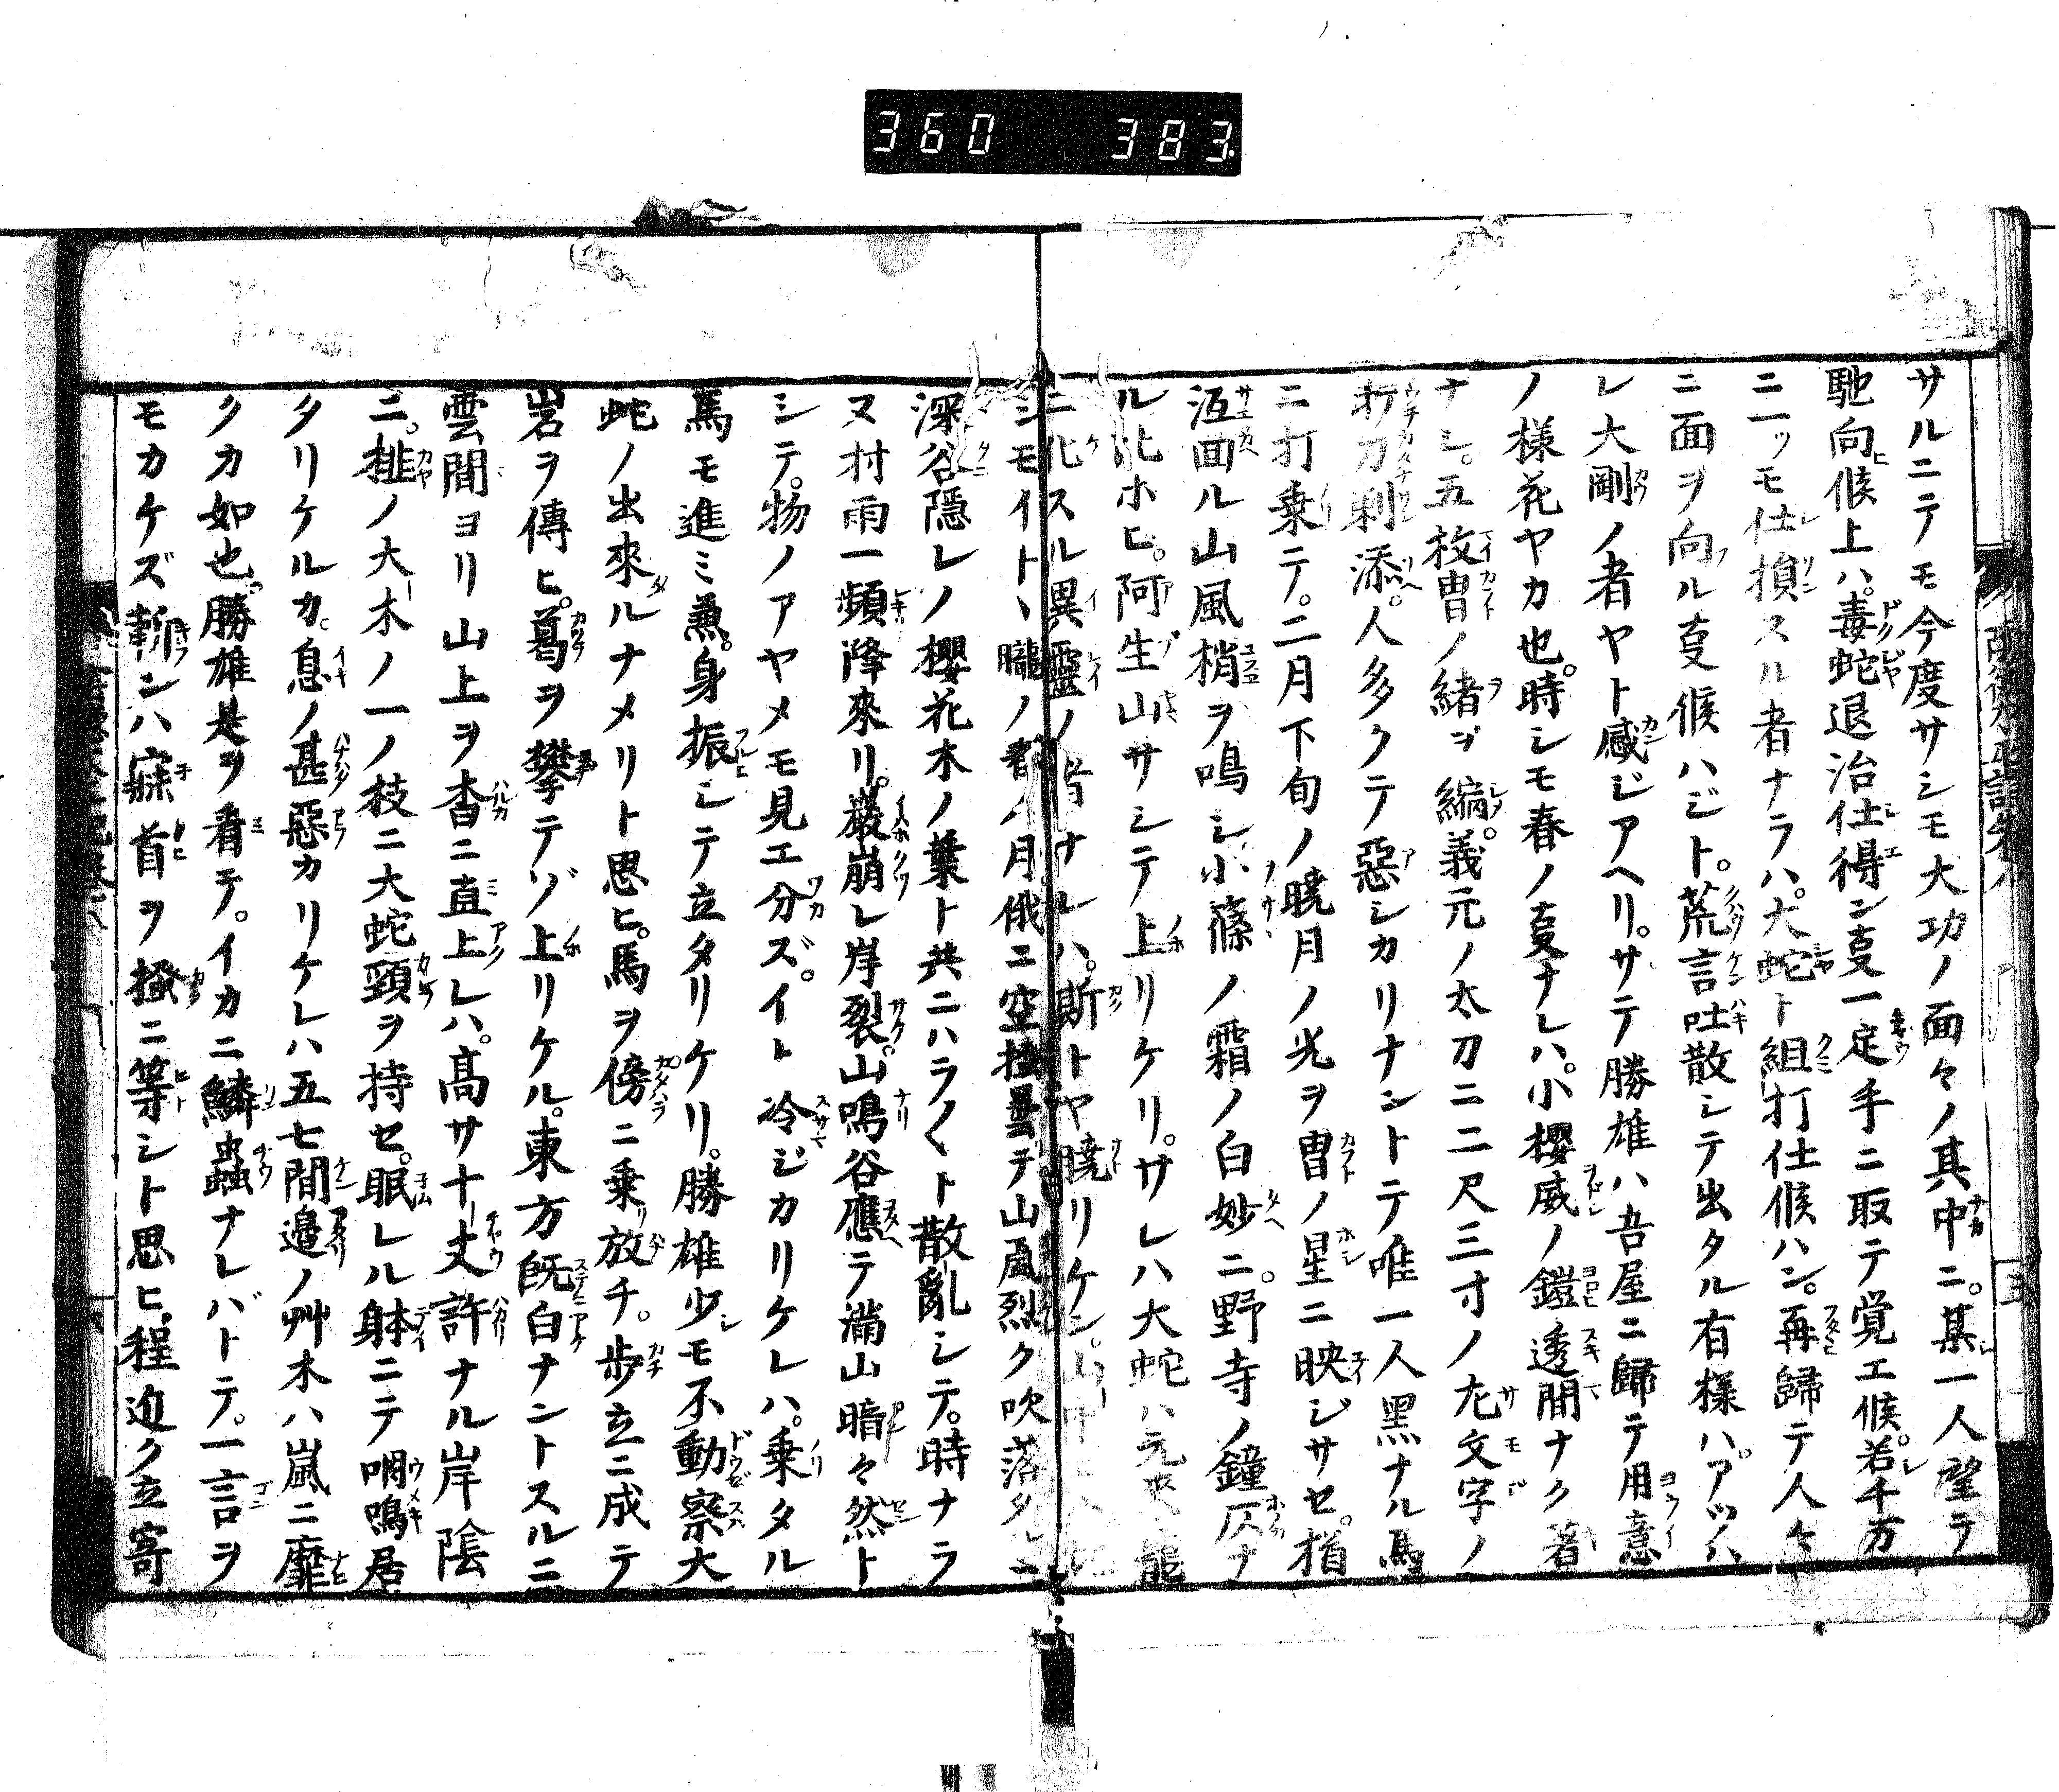 360 383
サルニテモ今度サシモ大功ノ面々ノ其中ニ。某一人望テ
馳向候上ハ。毒蛇退治仕得ン叓一定手ニ取テ覚エ候。若千万
ニ一ツモ仕損スル者ナラハ。大蛇ト組打仕候ハン。再歸テ人々
ニ面ヲ向ル叓候ハジト。荒言吐散シテ出タル有様ハ。アツハ
レ大剛ノ者ヤト感ジアヘリ。サテ勝雄ハ吾屋ニ歸テ用意
ノ様花ヤカ也。時シモ春ノ叓ナレハ。小櫻威ノ鎧透間ナク著
ナシ。五枚冑ノ緒ヲ編。義元ノ太刀ニ二尺三寸ノ尢文字ノ
打刀刺添。人多クテ惡シカリナントテ唯一人黒ナル馬
ニ打乗テ。二月下旬ノ曉月ノ光ヲ冑ノ星ニ映ジサセ。指
冱回ル山風梢ヲ鳴シ小篠ノ霜ノ白妙ニ。野寺ノ鐘仄ナ
ル比ホヒ。阿生山サシテ上リケリ。サレハ大蛇ハ元来龍
ニ化スル異靈ノ者ナレハ。斯トヤ曉リケン。山中
シモイトヽ朧ノ月俄ニ空掻曇テ山風烈ク吹落タルニ
深谷隠レノ櫻花木ノ葉ト共ニハラ〱ト散亂シテ。時ナラ
ヌ村雨一頻降來リ。巖崩レ岸裂。山鳴谷應テ満山暗々然ト
シテ。物ノアヤメモ見エ分ズ。イト冷ジカリケレハ。乗タル
馬モ進ミ兼。身振シテ立タリケリ。勝雄少モ不動察大
蛇ノ出來ルナメリト思ヒ。馬ヲ傍ニ乗放チ。歩立ニ成テ
岩ヲ傳ヒ。葛ヲ攀テゾ上リケル。東方既白ナントスルニ
雲間ヨリ山上ヲ杳ニ直上レハ。髙サ十丈許ナル岸陰
ニ。榧ノ大木ノ一ノ枝ニ大蛇頸ヲ持セ。眠レル躰ニテ呻鳴居
タリケルカ。息ノ甚惡カリケレハ五七間邉ノ艸木ハ嵐ニ靡
クカ如也。勝雄是ヲ看テ。イカニ鱗蟲ナレバトテ。一言ヲ
モカケズ斬ンハ寐首ヲ掻ニ等シト思ヒ。程近ク立寄